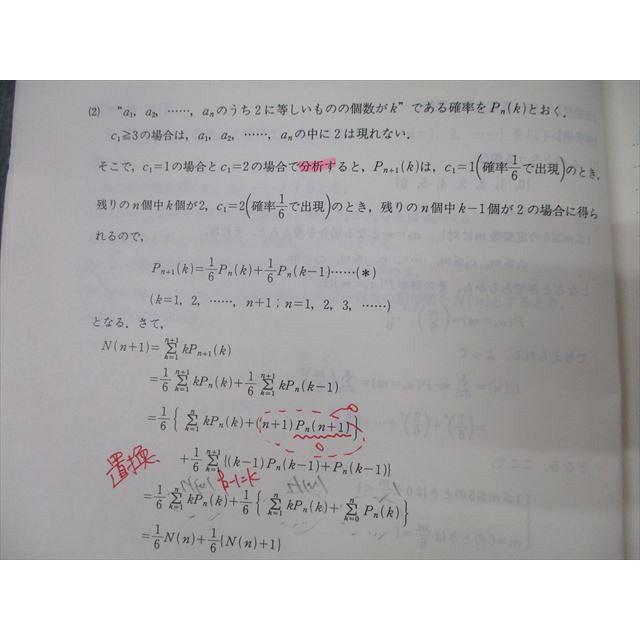 (2) “a₁, a₂, ……, aₙのうち2に等しいものの個数がk”である確率をPₙ(k)とおく.
c₁≧3の場合は, a₁, a₂, ……, aₙの中に2は現れない.
そこで, c₁=1の場合とc₁=2の場合で分析すると, Pₙ₊₁(k)は, c₁=1(確率1/6で出現)のとき,
残りのn個中k個が2, c₁=2(確率1/6で出現)のとき, 残りのn個中k−1個が2の場合に得ら
れるので,
Pₙ₊₁(k)=1/6Pₙ(k)+1/6Pₙ(k−1)……(*)
(k=1, 2, ……, n+1 ; n=1, 2, 3, ……)
となる. さて,
N(n+1)=Σ_{k=1}^{n+1} kPₙ₊₁(k)
=1/6 Σ_{k=1}^{n+1} kPₙ(k)+1/6 Σ_{k=1}^{n+1} kPₙ(k−1)
=1/6{Σ_{k=1}^{n} kPₙ(k)+(n+1)Pₙ(n+1)}
0
0
+1/6 Σ_{k=1}^{n+1} {(k−1)Pₙ(k−1)+Pₙ(k−1)}
置換
N(n) k-1=k N(n)
=1/6 Σ_{k=1}^{n} kPₙ(k)+1/6{Σ_{k=1}^{n} kPₙ(k)+Σ_{k=0}^{n} Pₙ(k)}
=1/6N(n)+1/6{N(n)+1}